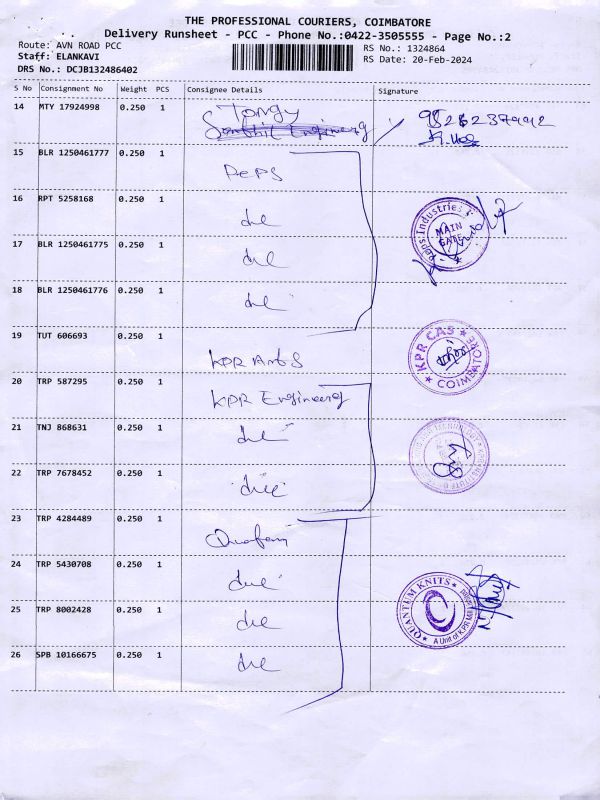 THE PROFESSIONAL COURIERS, COIMBATORE
Delivery Runsheet - PCC - Phone No.:0422-3505555 - Page No.:2
Route: AVN ROAD PCC
RS No.: 1324864
Staff: ELANKAVI
RS Date: 20-Feb-2024
DRS No.: DCJB132486402
S No Consignment No Weight PCS Consignee Details Signature
14 MTY 17924998 0.250 1
15 BLR 1250461777 0.250 1 PePS
16 RPT 5258168 0.250 1
17 BLR 1250461775 0.250 1
18 BLR 1250461776 0.250 1
Peps Industries
MAIN GATE
19 TUT 606693 0.250 1 KPR Arts
KPR CAS
COIMBATORE
20 TRP 587295 0.250 1 KPR Engineering
21 TNJ 868631 0.250 1
22 TRP 7678452 0.250 1
23 TRP 4284489 0.250 1
24 TRP 5430708 0.250 1
25 TRP 8002428 0.250 1
26 SPB 10166675 0.250 1
QUANTUM KNITS
A Unit of KPR Mill